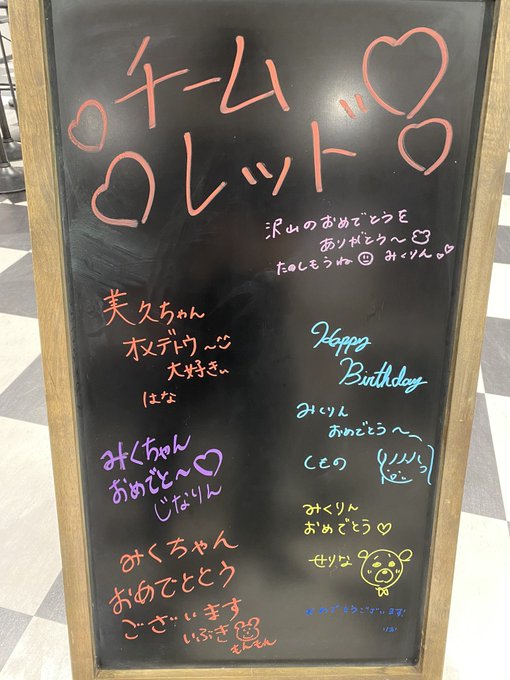 チーム
レッド
沢山のおめでとうを
ありがとう〜
たのしもうね みくりん
美久ちゃん
オメデトウ〜
大好きぃ
はな
Happy
Birthday
みくりん
おめでとう〜
くもの
みくちゃん
おめでと〜♡
じなりん
みくりん
おめでとう♡
せりな
みくちゃん
おめでととう
ございます
いぶき
もんもん
おめでとうございます!